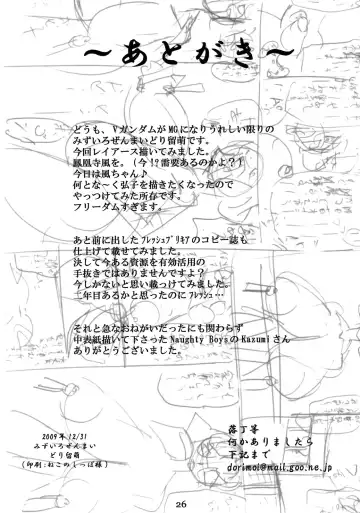 ～あとがき～
どうも、VガンダムがMGになりうれしい限りの
みずいろぜんまいどり留萌です。
今回レイアース描いてみました。
鳳凰寺風を。(今!?需要あるのかよ？)
今日は風ちゃん♪
何とな～く弘子を描きたくなったので
やっつけてみた所存です。
フリーダムすぎます。
あと前に出したﾌﾚｯｼｭﾌﾟﾘｷｭｱのコピー誌も
仕上げて載せてみました。
決して今ある資源を有効活用の
手抜きではありませんですよ？
今しかないと思い載っけてみました。
二年目あるかと思ったのにﾌﾚｯｼｭ…
それと急なおねがいだったにも関わらず
中表紙描いて下さったNaughty BoysのKazumiさん
ありがとうございました。
2009年12/31
みずいろぜんまい
どり留萌
(印刷:ねこのしっぽ様)
落丁等
何かありましたら
下記まで
dorimoi@mail.goo.ne.jp
26